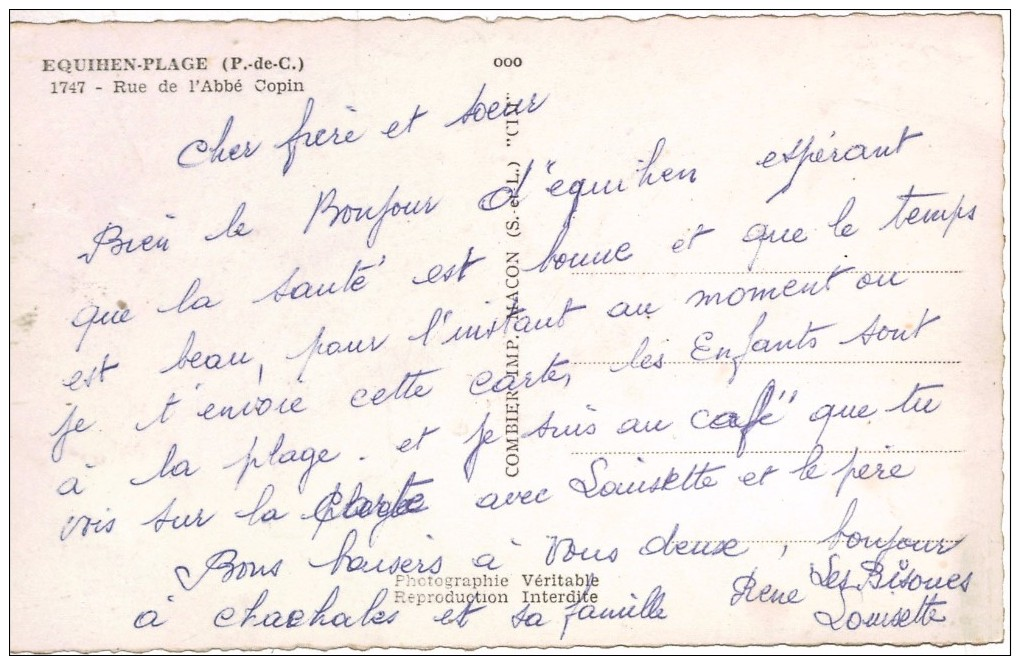 EQUIHEN-PLAGE (P.-de-C.)
1747 - Rue de l'Abbé Copin
ooo
COMBIER IMP. MACON (S.-et-L.) "CIM"
cher frère et soeur
Bien le Bonjour d'equihen espérant
que la santé est bonne et que le temps
est beau, pour l'instant au moment ou
je t'envoie cette carte, les Enfants sont
à la plage. et je suis au café que tu
vois sur la carte avec Louisette et le père
Bons baisers à vous deux, bonjour
à et sa famille
Rene
Les Bisoues
Louisette
Photographie Véritable
Reproduction Interdite